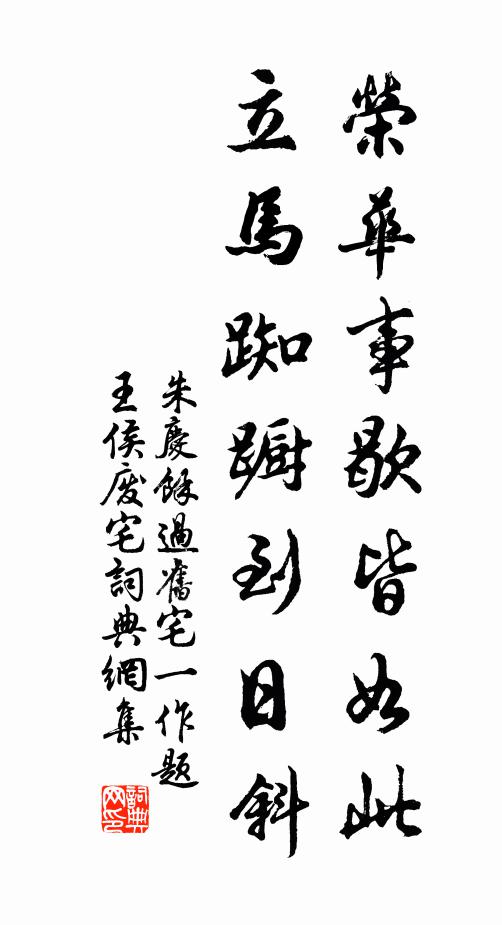 榮華事歇皆如此
立馬踟躕到日斜
朱慶餘過舊宅一作題
王侯廢宅詞典網集
詞典网印